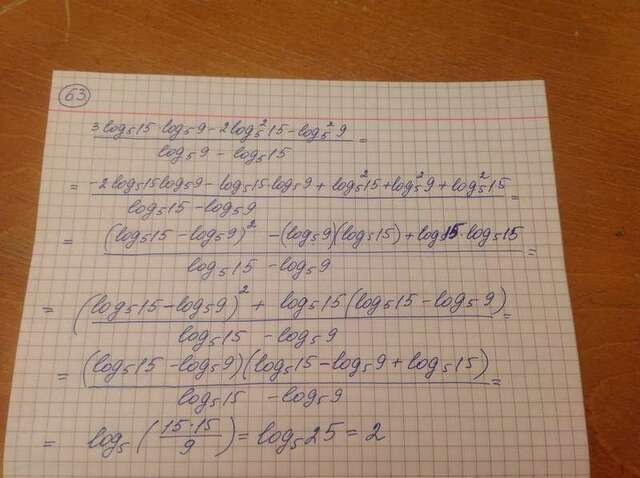 63
(3log₅15·log₅9 - 2log₅²15 - log₅²9)/(log₅9 - log₅15) =
= (-2log₅15log₅9 - log₅15·log₅9 + log₅²15 + log₅²9 + log₅²15)/(log₅15 - log₅9) =
= ((log₅15 - log₅9)² - (log₅9)(log₅15) + log₅15·log₅15)/(log₅15 - log₅9) =
= ((log₅15 - log₅9)² + log₅15(log₅15 - log₅9))/(log₅15 - log₅9) =
= ((log₅15 - log₅9)(log₅15 - log₅9 + log₅15))/(log₅15 - log₅9) =
= log₅(15·15/9) = log₅25 = 2